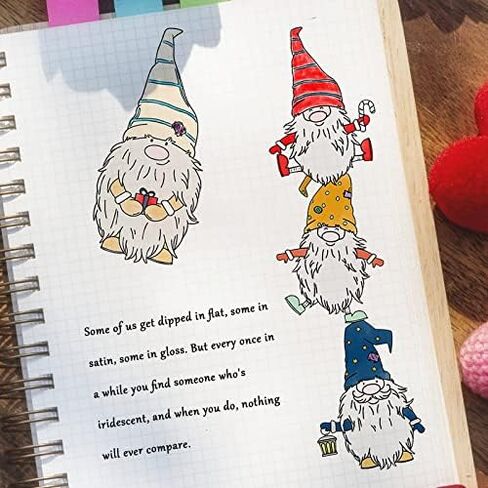 Some of us get dipped in flat, some in
satin, some in gloss. But every once in
a while you find someone who's
iridescent, and when you do, nothing
will ever compare.